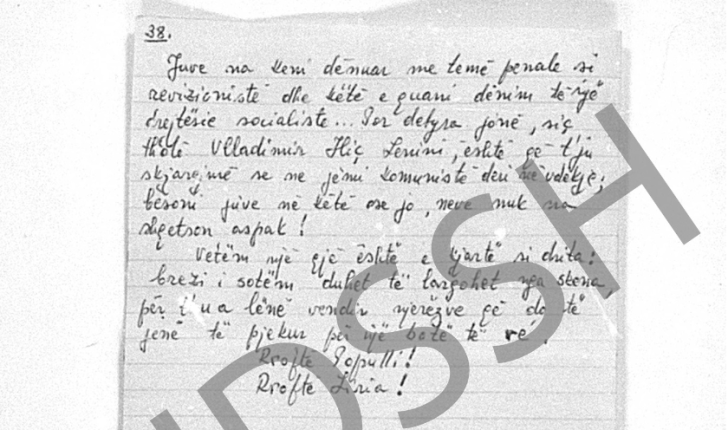 38.
Juve na keni dënuar me temë penale si
revizionistë dhe këtë e quani dënim të një
drejtësie socialiste... Por detyra jonë, siç
thotë Vlladimir Iliç Lenini, është që t'ju
skjarojmë se ne jemi komunistë deri në vdekje;
besoni juve në këtë ose jo, neve nuk na
shqetson aspak!
Vetëm një gjë është e qjartë si drita:
brezi i sotëm duhet të largohet nga skena
për t'ua lënë vendin njerëzve që do të
jenë të pjekur për një botë të re!
Rroftë Populli!
Rroftë Liria!
DSSH